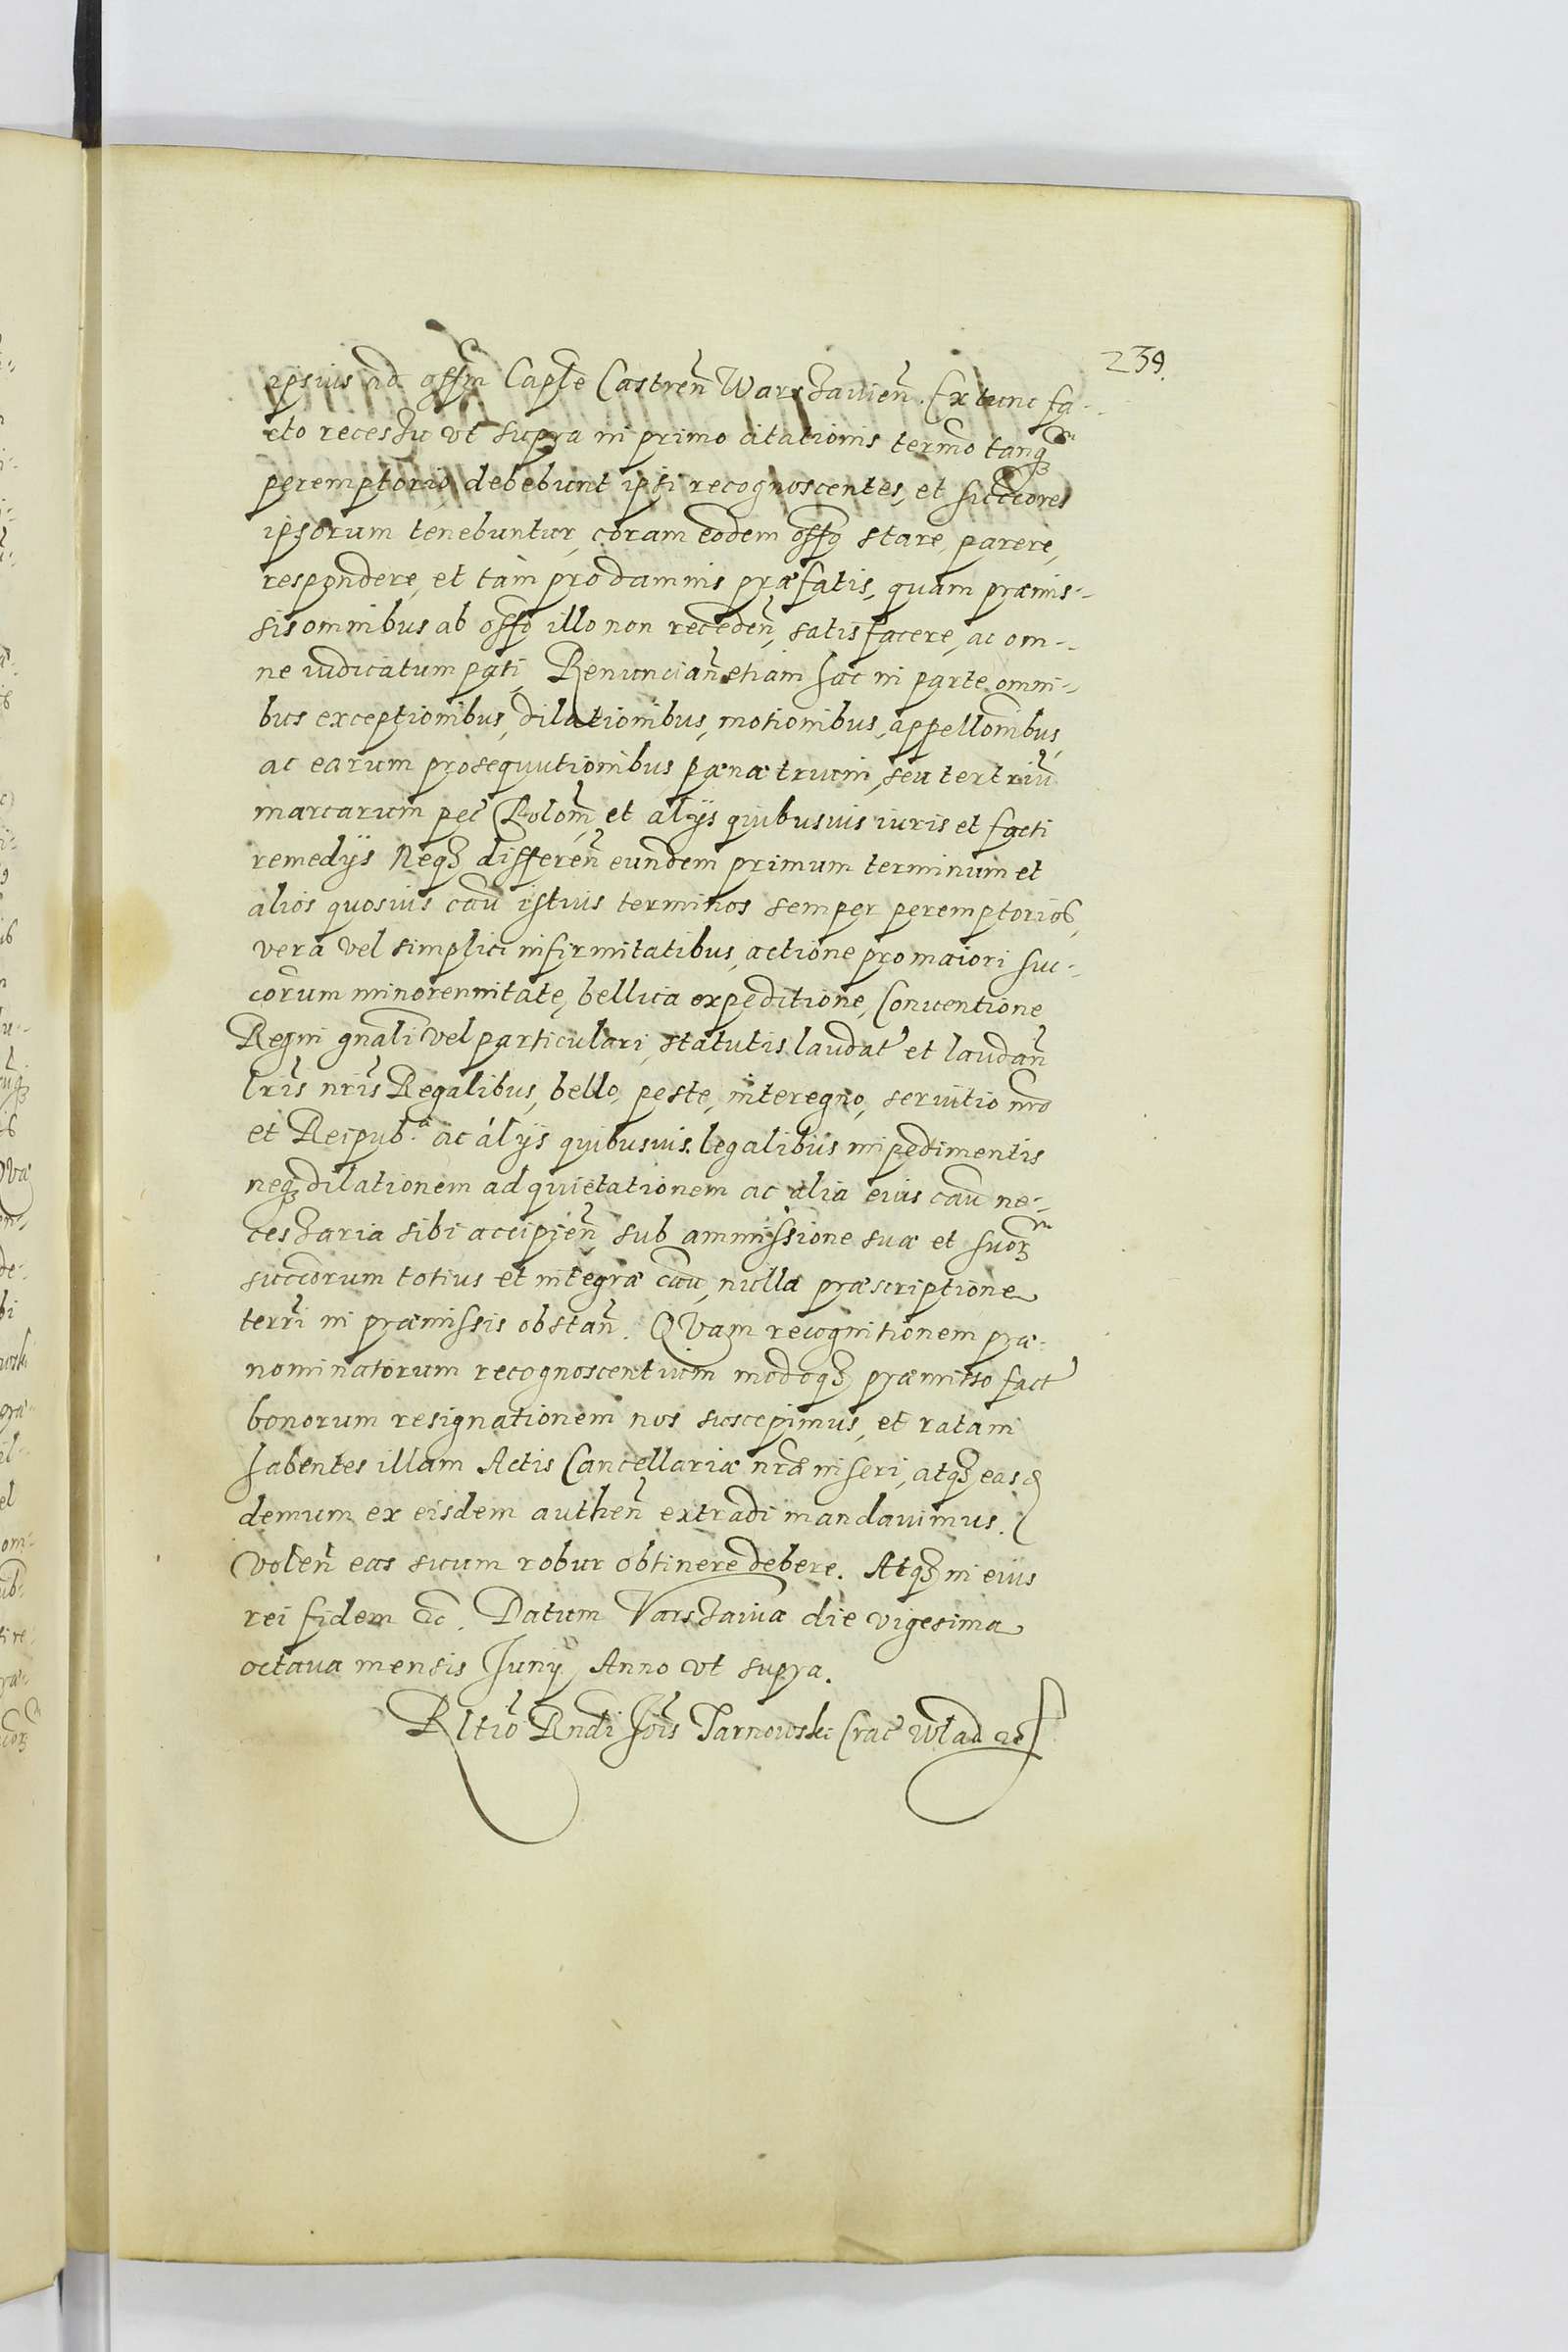 239.
ipsius ad offm Captle Castren̄ Warszauien̄. Extunc fa-
cto recessu vt supra in primo citationis termo tanqȝm
peremptorio, debebunt ipsi recognoscentes, et succores
ipsorum tenebuntur, coram eodem offo stare, parere,
respondere, et tam pro damnis præfatis, quam præmis-
sis omnibus ab offo illo non receden̄, satisfacere, ac om-
ne iudicatum pati, Renuncian̄ etiam hac in parte omni-
bus exceptionibus, dilationibus, motionibus, appellonibus,
ac earum prosequutionibus pænæ trium, seu ter triū
marcarum pec̄ Polon̄, et alijs quibusuis iuris et facti
remedijs Neqȝ differen̄ eundem primum terminum et
alios quosuis cau istius terminos semper peremptorios,
vera vel simplici infirmitatibus, actione pro maiori suc-
corum minorennitate, bellica expeditione, Conuentione
Regni gnali vel particulari, statutis laudat et laudan̄
lris nris Regalibus, bello, peste, interegno, seruitio nro
et Reipub.a ac alijs quibusuis legalibus impedimentis
neqȝ dilationem ad quietationem ac alia eius cau ne-
cessaria sibi accipien̄ sub ammissione suæ et suorȝm
succorum totius et integræ cau, nulla præscriptione
terri in præmissis obstan̄. QVam recognitionem præ-
nominatorum recognoscentium modoqȝ præmisso fact
bonorum resignationem nos suscepimus, et ratam
habentes illam Actis Cancellariæ nræ inseri, atqȝ eas
demum ex eisdem authen̄ extradi mandauimus.
Volen̄ eas suum robur obtinere debere. Atqȝ in eius
rei fidem &c. Datum Varszauiæ die vigesima
octaua mensis Junij Anno vt supra.
Rltio Rndi Jois Tarnowski Crac Wlad &c